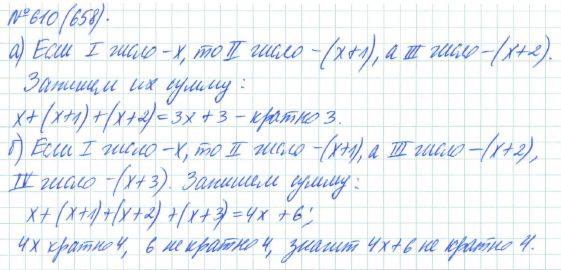 №610(658).
а) Если I число – x, то II число – (x+1), а III число – (x+2).
Запишем их сумму:
x+(x+1)+(x+2)=3x+3 – кратно 3.
б) Если I число – x, то II число – (x+1), а III число – (x+2),
IV число – (x+3). Запишем сумму:
x+(x+1)+(x+2)+(x+3)=4x+6;
4x кратно 4, 6 не кратно 4, значит 4x+6 не кратно 4.